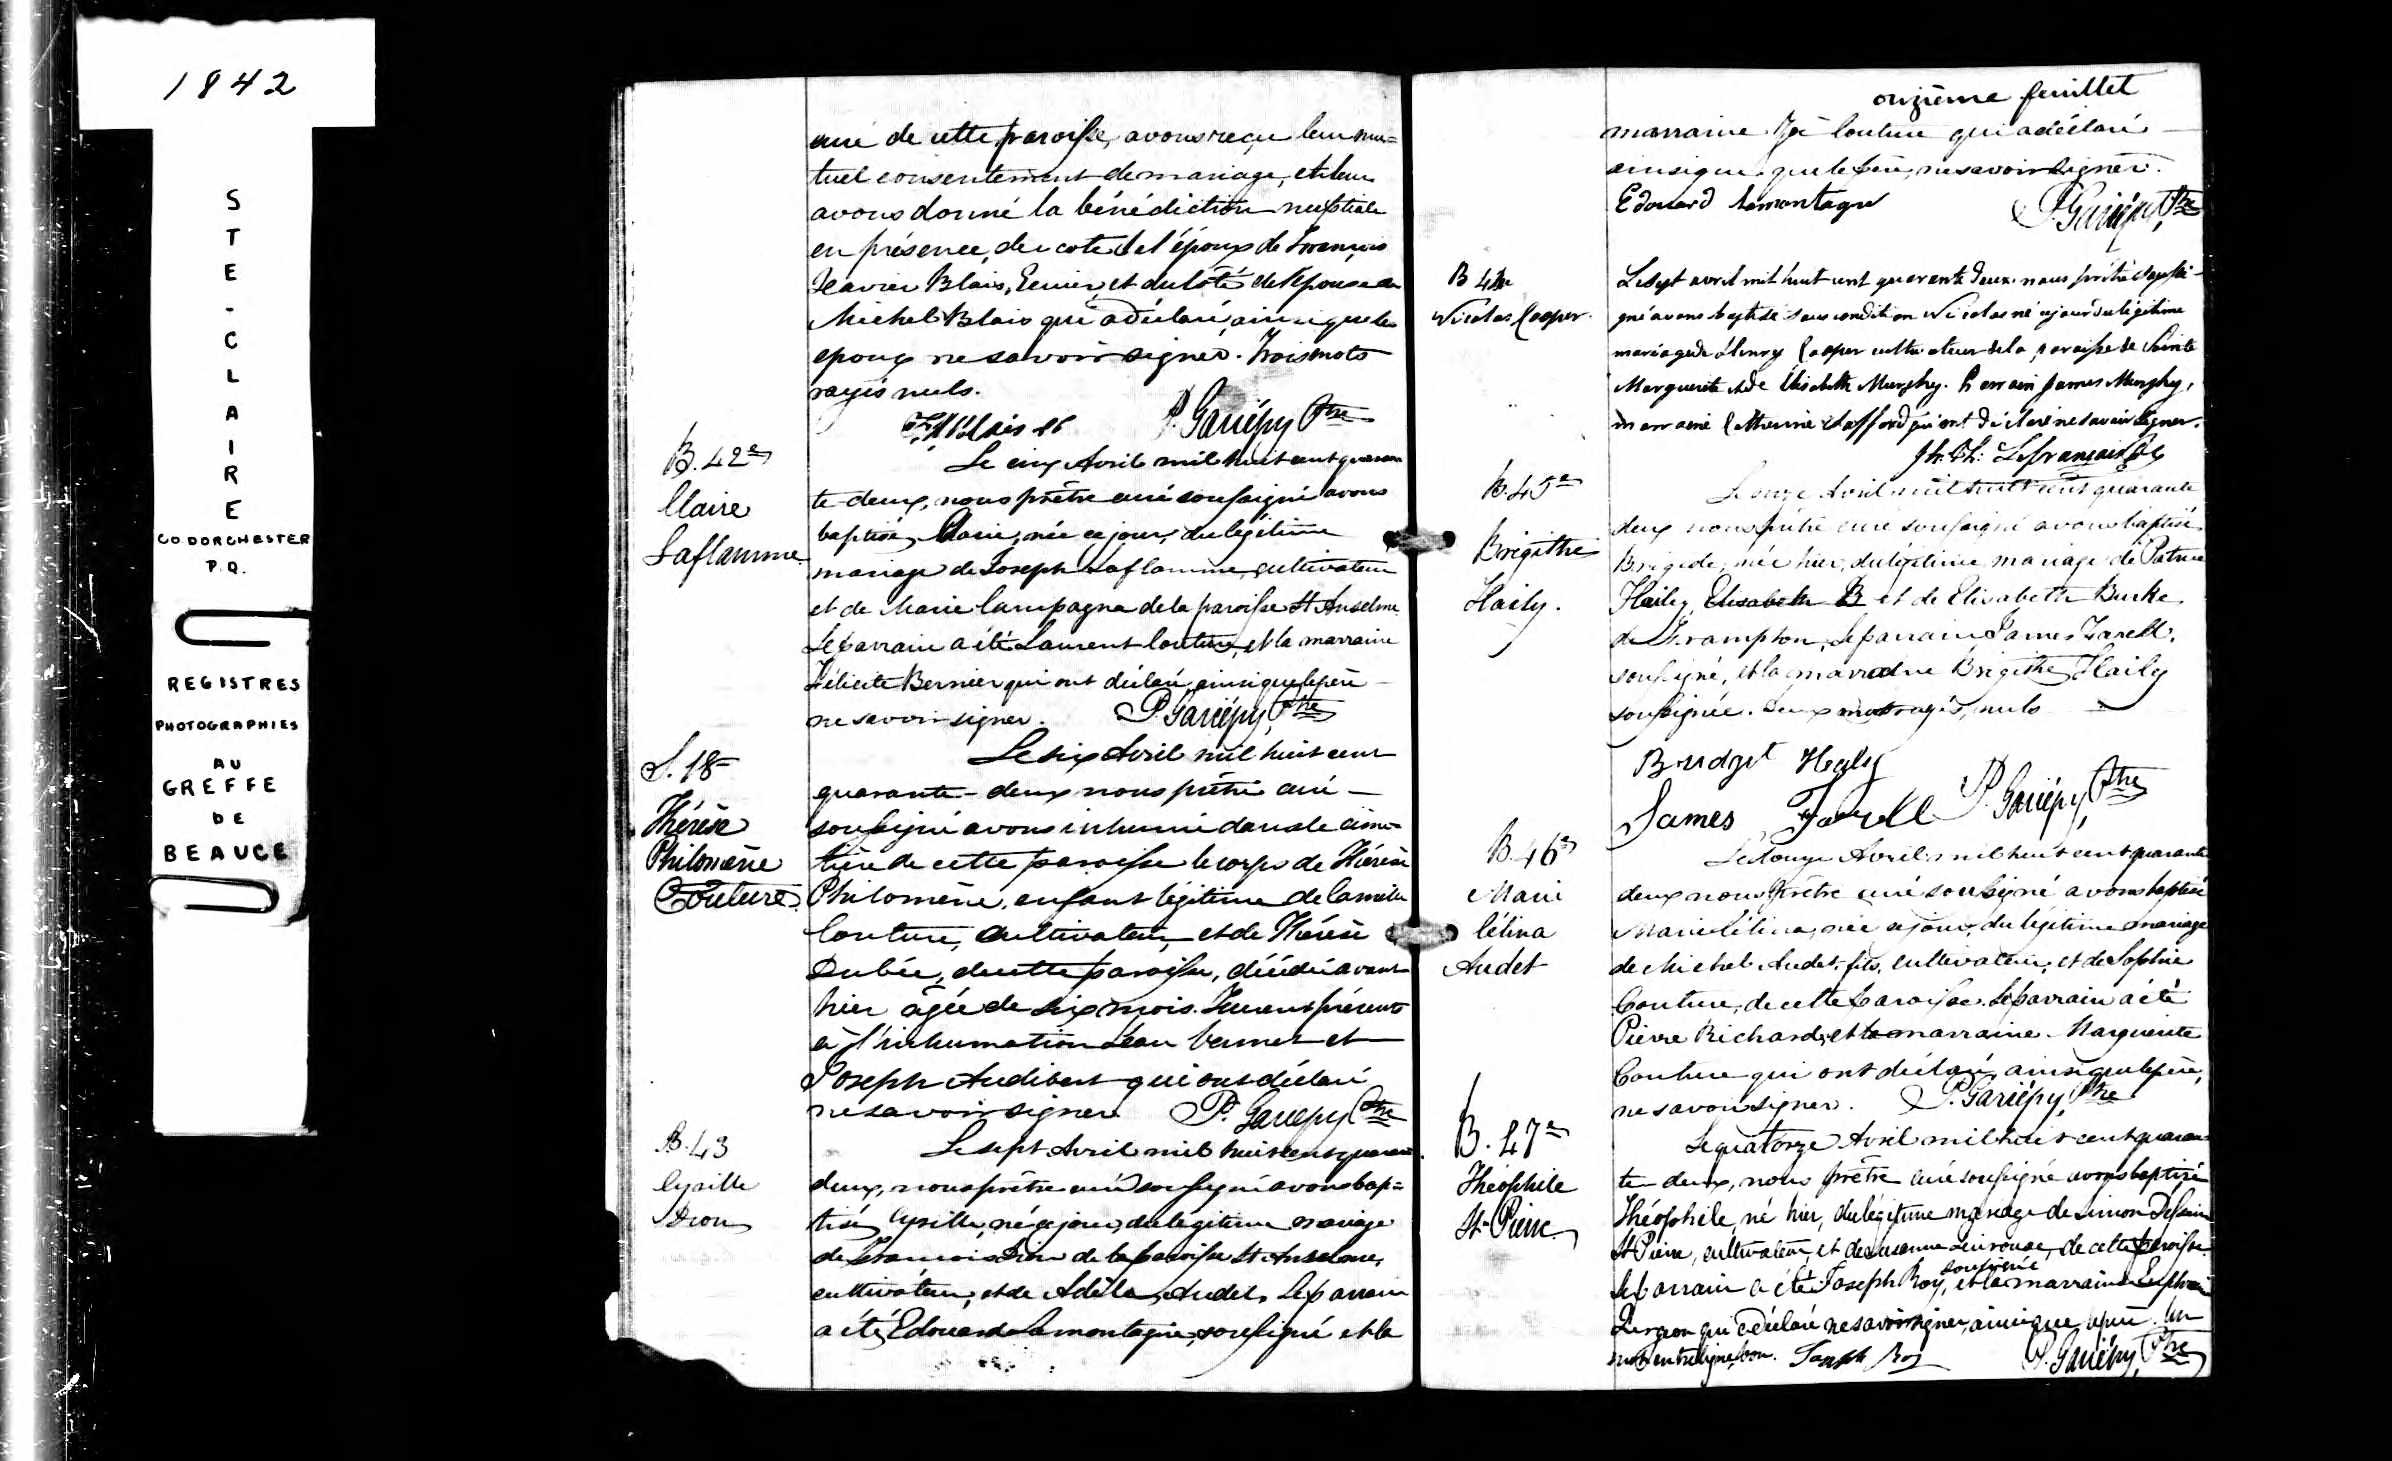 1842
STE-CLAIRE
CO DORCHESTER
P.Q.
REGISTRES
PHOTOGRAPHIES
AU
GREFFE
DE
BEAUCE
curé de cette paroisse, avons reçu leur mu=
tuel consentement de mariage, et leur
avons donné la bénédiction nuptiale
en présence, du coté de l'époux de François
Xavier Blais, Ecuier, et du côté de l'épouse de
Michel Blais qui a déclaré, ainsi que les
epoux ne savoir signer. Trois mots
rayés nuls.
P. Gariépy Ptre
B. 42e
Claire
Laflamme
Le cinq Avril mil huit cent quaran
te-deux, nous prêtre curé soussigné avons
baptisé, Claire, née ce jour, du légitime
mariage de Joseph Laflamme, cultivateur
et de Marie Campagna de la paroisse St Anselme
Le parrain a été Laurent Couture, et la marraine
Félicite Bernier qui ont déclaré, ainsi que le père
ne savoir signer. P. Gariépy, Ptre
S. 18
Thérèse
Philomène
Couture
Le six Avril mil huit cent
quarante-deux nous prêtre curé
soussigné avons inhumé dans le cime-
tière de cette paroisse le corps de Thérèse
Philomène, enfant légitime de Camille
Couture, cultivateur, et de Thérèse
Dubée, de cette paroisse, décédée avant
hier agée de six mois. Furent présents
à l'inhumation Jean et
Joseph Audibert qui ont déclaré
ne savoir signer P. Gariépy Ptre
B. 43
Cyrille
Dion
Le sept Avril mil huit cent quarante
deux, nous prêtre curé soussigné avons bap=
tisé, Cyrille, né ce jour, du légitime mariage
de François Dion de la paroisse St Anselme,
cultivateur, et de Adéla Audet. Le parrain
a été Edouard Lamontagne, soussigné et la
onzième feuillet
marraine Couture qui a déclaré
ainsi que que le père, ne savoir signer.
Edouard Lamontagne P. Gariépy, Ptre
B 44
Nicolas Cooper
Le sept avril mil huit cent quarante deux nous prêtre soussi-
gné avons baptisé sous condition Nicolas né ce jour du légitime
mariage de Henry Cooper cultivateur de la paroisse de Sainte
Marguerite et de Elisabeth Murphy. Parrain James Murphy,
marraine Catherine Stafford qui ont déclaré ne savoir signer.
Lefrançois Ptre
B. 45e
Brigithe
Haily.
Le onze Avril mil huit cent quarante
deux nous prêtre curé soussigné avons baptisé
Brigide, née hier, du légitime mariage de Patrice
Haily, Elisabeth B et de Elisabeth Burke
de Frampton, Le parrain James Farell,
soussigné, et la marraine Brigithe Haily
soussignée. Deux mots rayés, nuls
Bridget Healy
James Farell P. Gariépy, Ptre
B. 46e
Marie
Célina
Audet
Le douze Avril mil huit cent quarante
deux nous prêtre curé soussigné avons baptisé
Marie Célina, née ce jour, du légitime mariage
de Michel Audet, fils, cultivateur, et de Sophie
Couture, de cette paroisse. Le parrain a été
Pierre Richard, et la marraine Marguerite
Couture qui ont déclaré, ainsi que le père,
ne savoir signer. P. Gariépy, Ptre
B. 47e
Théophile
St-Pierre
Le quatorze Avril mil huit cent quaran
te-deux, nous prêtre curé soussigné avons baptisé
Théophile, né hier, du légitime mariage de Simon Dessein
St Pierre, cultivateur, et de Susanne de cette paroisse.
soussigné
Le parrain a été Joseph Roy, et la marraine
qui a déclaré ne savoir signer, ainsi que le père. Un
mot entreligne, bon. Joseph Roy P. Gariépy, Ptre